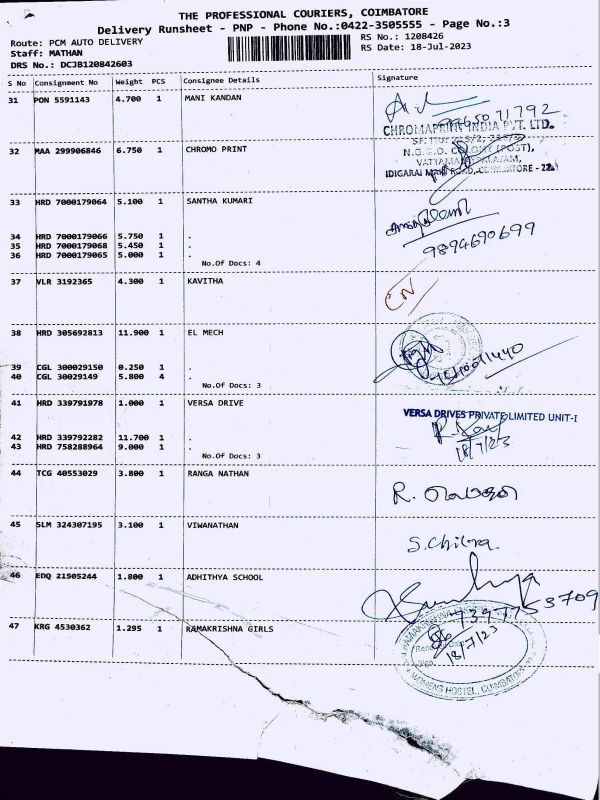 THE PROFESSIONAL COURIERS, COIMBATORE
Delivery Runsheet - PNP - Phone No.:0422-3505555 - Page No.:3
Route: PCM AUTO DELIVERY
Staff: MATHAN
DRS No.: DCJB120842603
RS No.: 1208426
RS Date: 18-Jul-2023
S No Consignment No Weight PCS Consignee Details Signature
31 PON 5591143 4.700 1 MANI KANDAN
CHROMAPRINT INDIA PVT. LTD.
32 MAA 299906846 6.750 1 CHROMO PRINT
N.G.G.O. COLONY (POST),
33 HRD 7000179064 5.100 1 SANTHA KUMARI
34 HRD 7000179066 5.750 1 .
35 HRD 7000179068 5.450 1 .
36 HRD 7000179065 5.000 1 .
9894690699
No.Of Docs: 4
37 VLR 3192365 4.300 1 KAVITHA
38 HRD 305692813 11.900 1 EL MECH
39 CGL 300029150 0.250 1 .
40 CGL 30029149 5.800 4 .
No.Of Docs: 3
41 HRD 339791978 1.000 1 VERSA DRIVE
VERSA DRIVES PRIVATE LIMITED UNIT-I
42 HRD 339792282 11.700 1 .
43 HRD 758288964 9.000 1 .
18/7/23
No.Of Docs: 3
44 TCG 40553029 3.800 1 RANGA NATHAN
R.
45 SLM 324307195 3.100 1 VIWANATHAN
S. Chitra
46 EDQ 21505244 1.800 1 ADHITHYA SCHOOL
47 KRG 4530362 1.295 1 RAMAKRISHNA GIRLS
18/7/23
WOMENS HOSTEL, COIMBATORE